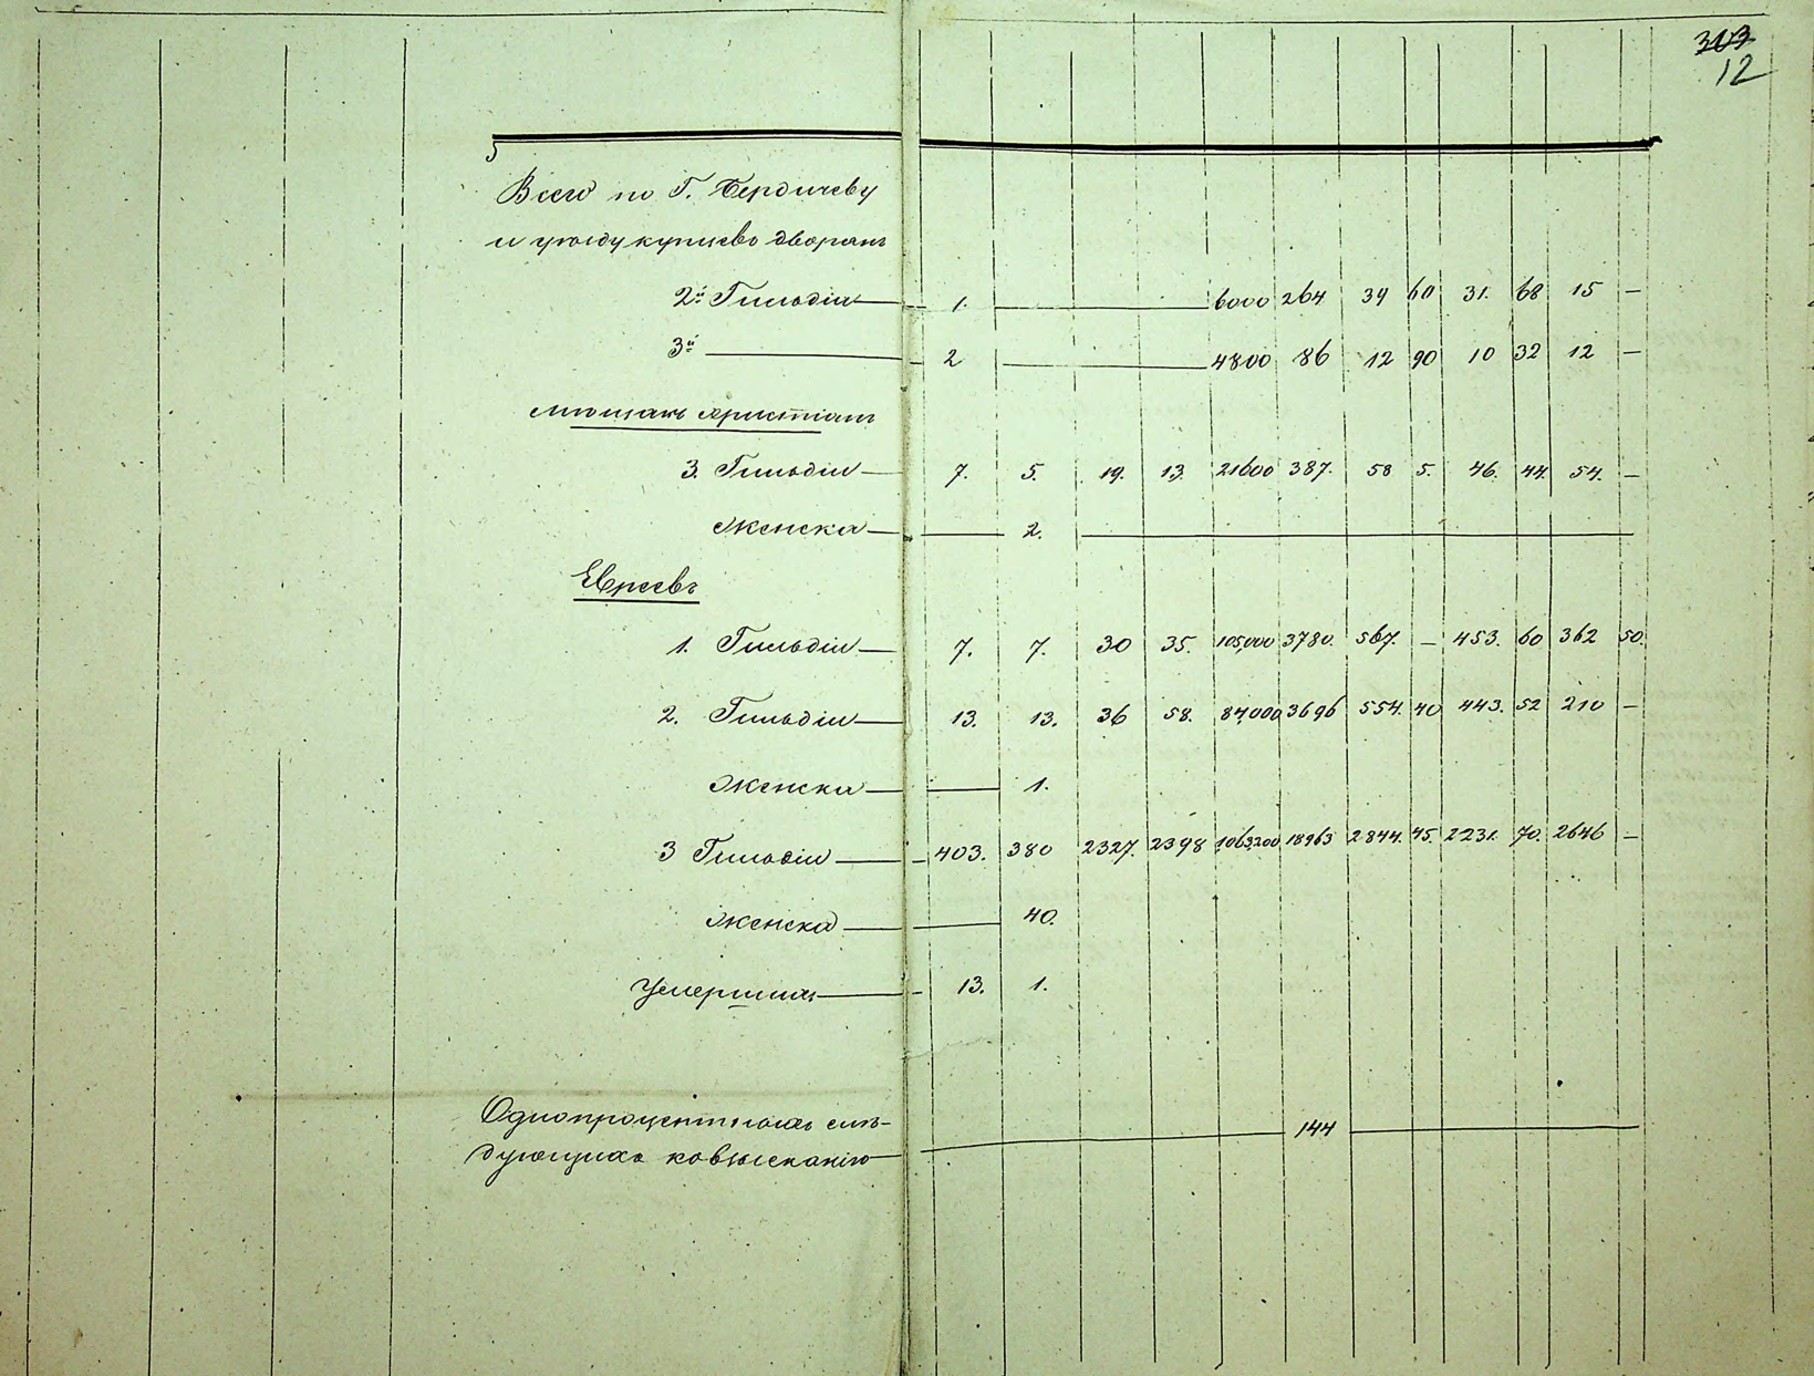 303
12
Всего по Г. Бердичеву
и уѣзду купцевъ дворянъ
2й Гильдіи 1. 6000 264 39 60 31. 68 15 —
3й 2 4800 86 12 90 10 32 12 —
мѣщанъ христіанъ
3. Гильдіи 7. 5. 19. 13. 21600 387. 58 5. 46. 44. 54. —
Женска 2.
Евреевъ
1. Гильдіи 7. 7. 30 35. 105,000 3780. 567. — 453. 60 362 50.
2. Гильдіи 13. 13. 36 58. 84,000 3696 554. 40 443. 52 210 —
Женска 1.
3 Гильдіи 403. 380 2327. 2398 1063200 18963 2844. 45. 2231. 70. 2646 —
Женска 40.
Умершихъ 13. 1.
Однопроцентныхъ слѣ-
дующихъ ко взысканію 144